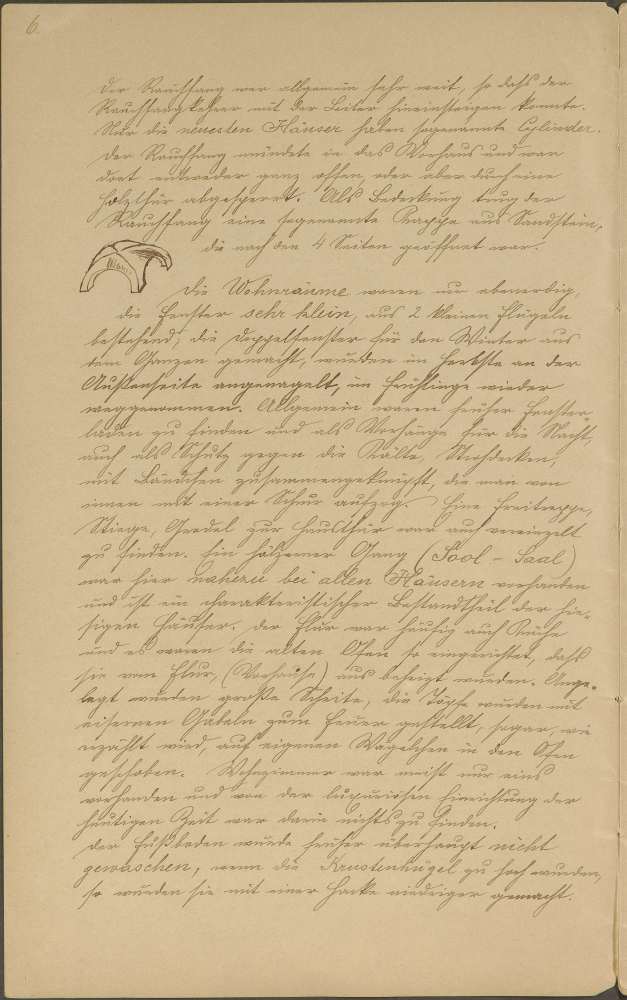 6
Der Rauchfang war allgemein sehr weit, so daſs der
Rauchfangkehrer mit der Leiter hineinsteigen konnte.
Nur die neuesten Häuser haben sogenannte Cylinder.
Der Rauchfang mündete in das Vorhaus und war
dort entweder ganz offen, oder aber durch eine
Holzthür abgesperrt. Als Bedeckung trug der
Rauchfang eine sogenannte Kappe aus Sandstein,
die nach den 4 Seiten geöffnet war.
Die Wohnräume waren nur ebenerdig,
die Fenster sehr klein, aus 2 kleinen Flügeln
bestehend; die Doppelfenster für den Winter aus
dem Ganzen gemacht, wurden im Herbste an der
Außenseite angenagelt, im Frühlinge wieder
weggenommen. Allgemein waren früher Fenster-
laden zu finden und als Vorhänge für die Nacht,
auch als Schutz gegen die Kälte,
mit Bändchen zusammengeknüpft, die man von
innen mit einer Schnur aufzog. Eine Freitreppe,
Stiege, Gredel zur Hausthür war auch vereinzelt
zu finden. Ein hölzerner Gang (Sool - Saal)
war hier nahezu bei allen Häusern vorhanden
und ist ein charakteristischer Bestandtheil der hie-
sigen Häuser. Der Flur war häufig auch Küche
und es waren die alten Öfen so eingerichtet, daſs
sie vom Flur, (Vorhause) aus beheizt wurden. Ange-
legt wurden große Scheite, die Töpfe wurden mit
eisernen Gabeln zum Feuer gestellt, sogar, wie
erzählt wird, auf eigenen Wägelchen in den Ofen
geschoben. Wohnzimmer war meist nur eins
vorhanden und von der luxuriösen Einrichtung der
heutigen Zeit war darin nichts zu finden.
Der Fußboden wurde früher überhaupt nicht
gewaschen, wenn die Krustenhügel zu hoch wurden,
so wurden sie mit einer Hacke niedriger gemacht.